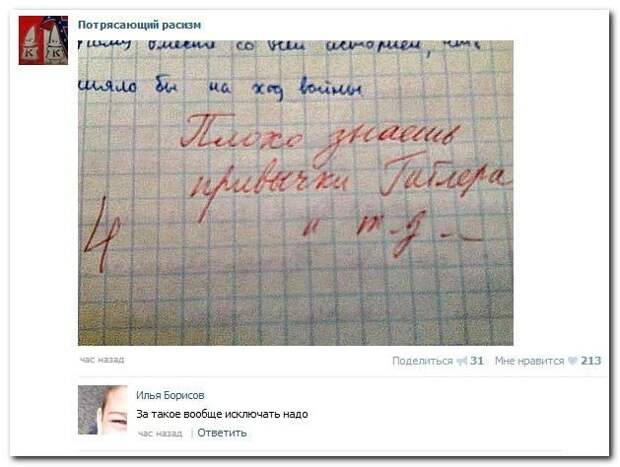 Потрясающий расизм
K K
вместе со всей историей,
бы на ход войны
Плохо знаешь
привычки Гитлера
и т.д...
4
час назад
Поделиться 31 Мне нравится 213
Илья Борисов
За такое вообще исключать надо
час назад | Ответить